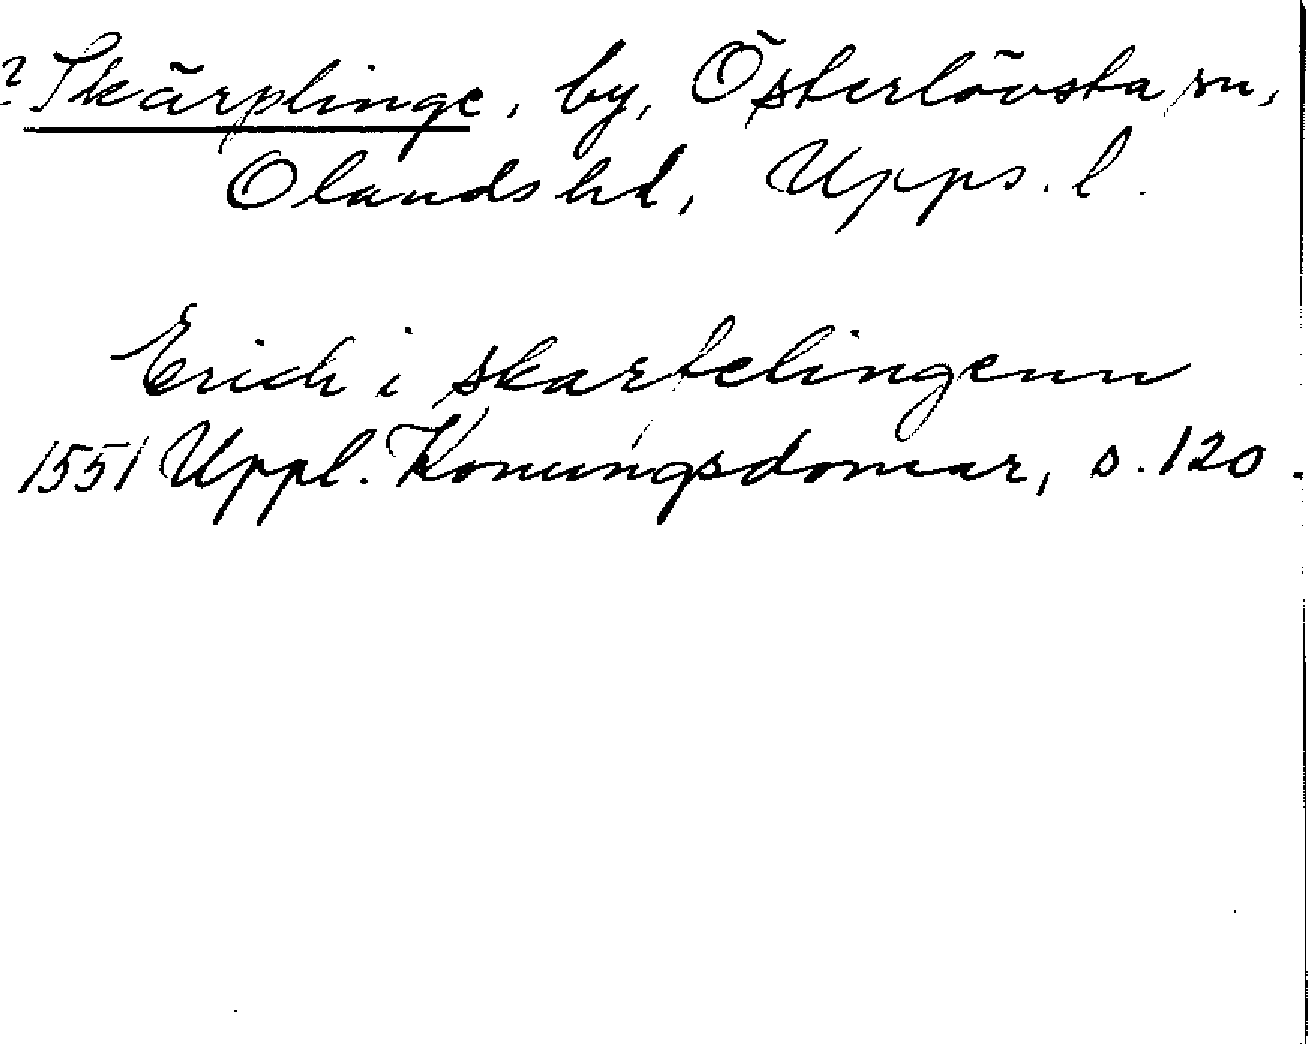 ? Skärplinge, by, Österlövsta sn,
Olands hd, Upps. l.
Erich i skarfelingenn
1551 Uppl. Konungsdomar, s. 120.